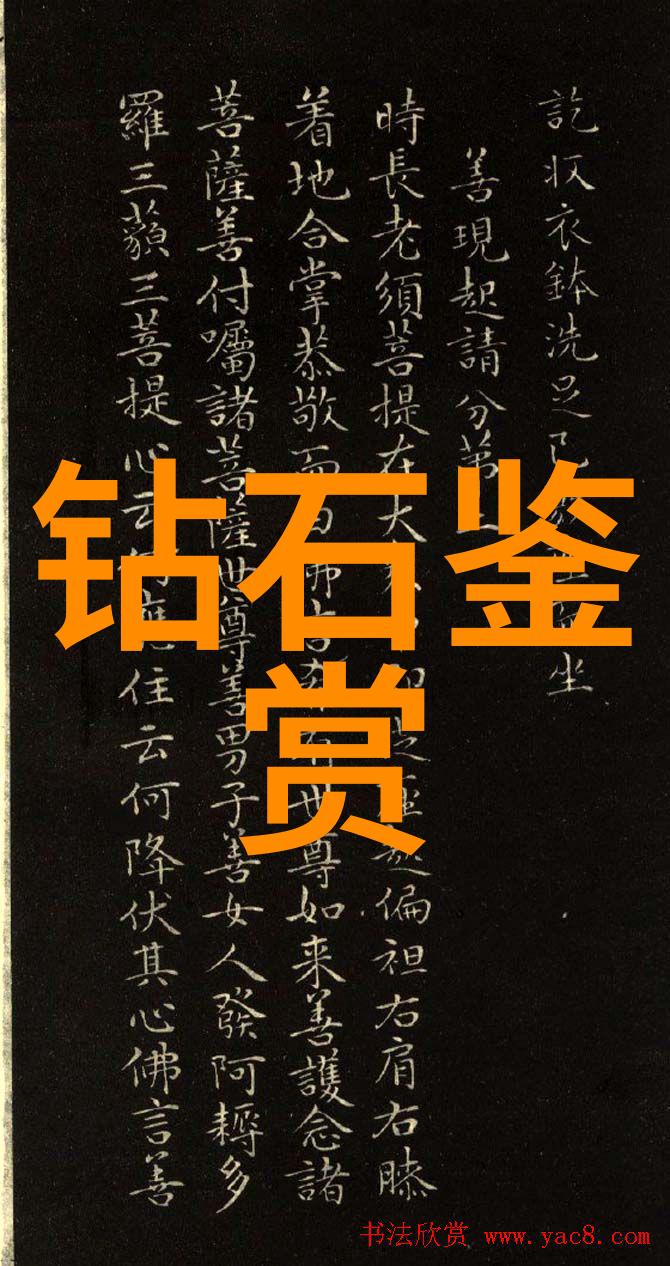 訖収衣鉢洗足已坐
善現起請分第
時長老須菩提在大座起偏袒右肩右膝
着地合掌恭敬而白佛言有世尊如来善護念諸
菩薩善付囑諸菩薩世尊善男子善女人發阿耨多
羅三藐三菩提心云何應住云何降伏其心佛言善
钻石鉴
赏
书法欣赏 www.yac8.com